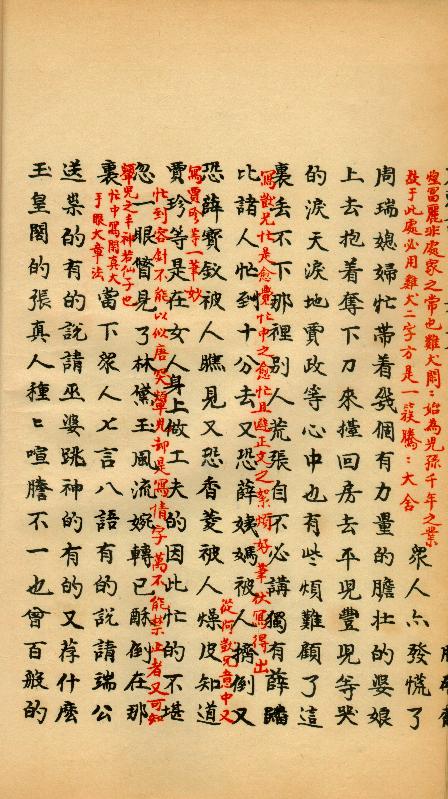 煌富麗非處家之常也雞犬閒：始為兒孫千年之業
故于此處必用雞犬二字方是一簇騰：大舍
眾人亦發慌了
周瑞媳婦忙帶着幾個有力量的膽壯的婆娘
上去抱着奪下刀來擡回房去平兒豐兒等哭
的淚天淚地賈政等心中也有些煩難顧了這
裏丟不下那裡別人荒張自不必講獨有薛蟠
寫獃兄忙是愈覺忙中之愈忙且避正文之絮煩好筆伏寫得出
比諸人忙到十分去又恐薛姨媽被人擠倒又
從何獃兄意中又
寫賈珍等一筆妙
恐薛寶釵被人瞧見又恐香菱被人燥皮知道
賈珍等是在女人身上做工夫的因此忙的不堪
忙到容針不能以似唐突顰兒卻是寫情字萬不能禁止者又可知
顰兒之丰神若仙子也
忽一眼瞥見了林黛玉風流婉轉已酥倒在那
裏
忙中寫閒真大
手眼大章法
當下眾人七言八語有的說請端公
送祟的有的說請巫婆跳神的有的又荐什庅
玉皇閣的張真人種〻喧騰不一也曾百般的